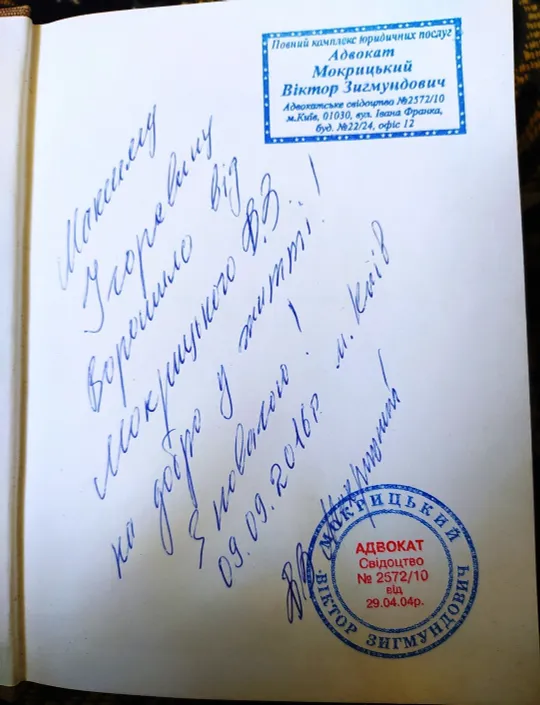 Повний комплекс юридичних послуг
Адвокат
Мокрицький
Віктор Зигмундович
Адвокатське свідоцтво №2572/10
м.Київ, 01030, вул. Івана Франка,
буд. №22/24, офіс 12
Максиму
Ігоревичу
Ворошило від
Мокрицького В.З.
на добро у житті..!
З повагою!
09.09.2016р. м. Київ
Мокрицький!
МОКРИЦЬКИЙ
ВІКТОР ЗИГМУНДОВИЧ
АДВОКАТ
Свідоцтво
№ 2572/10
від
29.04.04р.